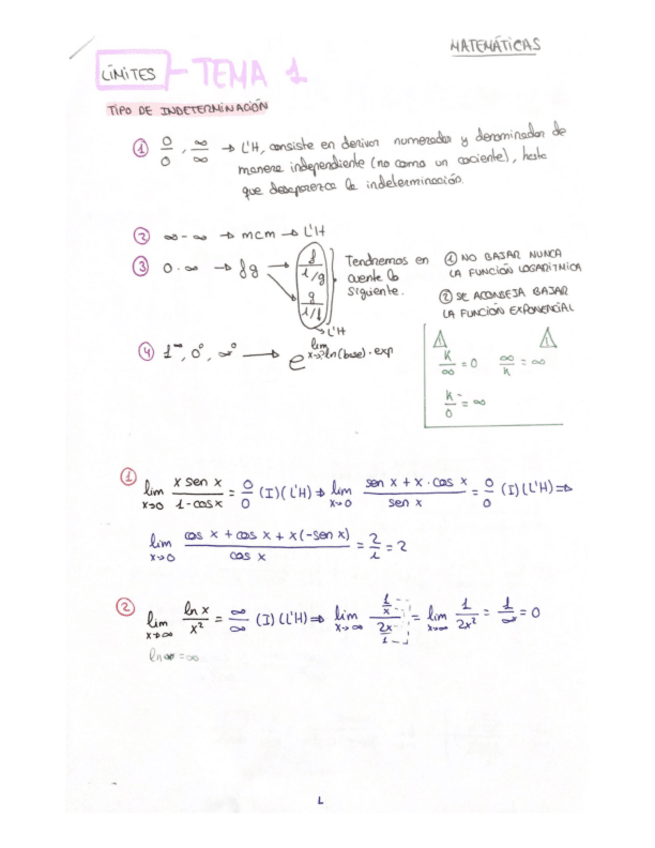 MATEMÁTICAS
LÍMITES - TEMA 1
TIPO DE INDETERMINACIÓN
① 0/0, ∞/∞ → L'H, consiste en derivar numerador y denominador de
manera independiente (no como un cociente), hasta
que desaparezca la indeterminación.
② ∞-∞ → mcm → L'H
③ 0·∞ → fg → f / 1/g
g / 1/f
→ L'H
Tendremos en
cuenta lo
siguiente.
① NO BAJAR NUNCA
LA FUNCIÓN LOGARÍTMICA
② SE ACONSEJA BAJAR
LA FUNCIÓN EXPONENCIAL
④ 1^∞, 0^0, ∞^0 → e^lim x→? ln(base)·exp
⚠ ⚠
k/∞ = 0 ∞/k = ∞
k/0 = ∞
① lim x→0 x sen x / 1-cos x = 0/0 (I)(L'H) ⇒ lim x→0 sen x + x · cos x / sen x = 0/0 (I)(L'H) ⇒
lim x→0 cos x + cos x + x(-sen x) / cos x = 2/1 = 2
② lim x→∞ ln x / x² = ∞/∞ (I)(L'H) ⇒ lim x→∞ 1/x / 2x/1 = lim x→∞ 1/2x² = 1/∞ = 0
ln ∞ = ∞
1